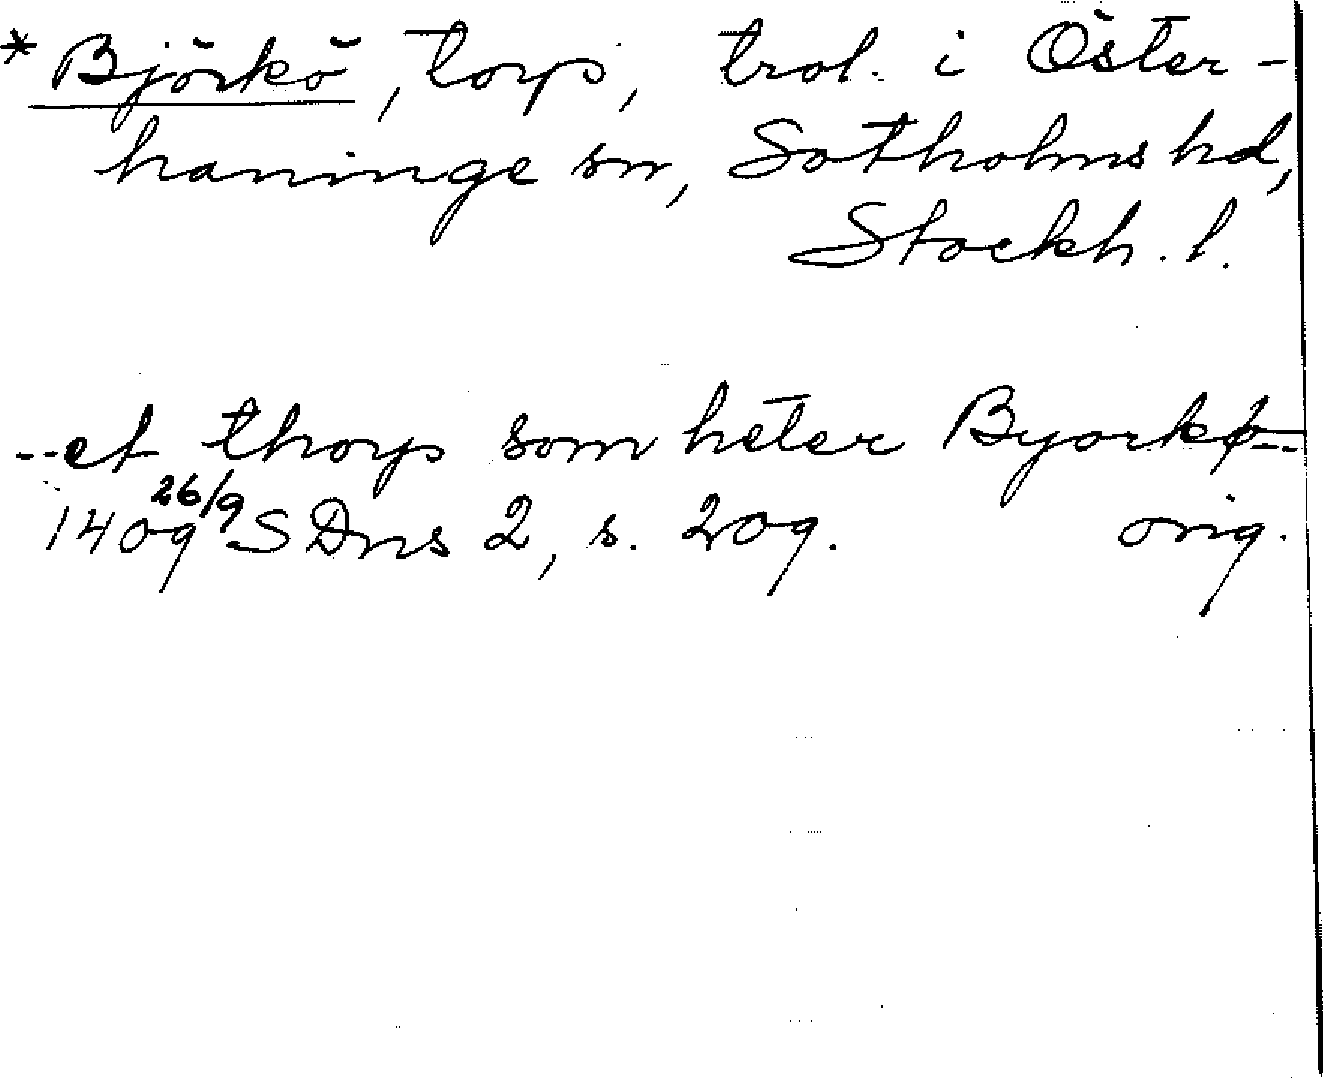 * Björkö, torp, trol. i Öster-
haninge sn, Sotholms hd,
Stockh. l.
--et thorp som heter Byorkø--
1409 26/9 SDns 2, s. 209. orig.